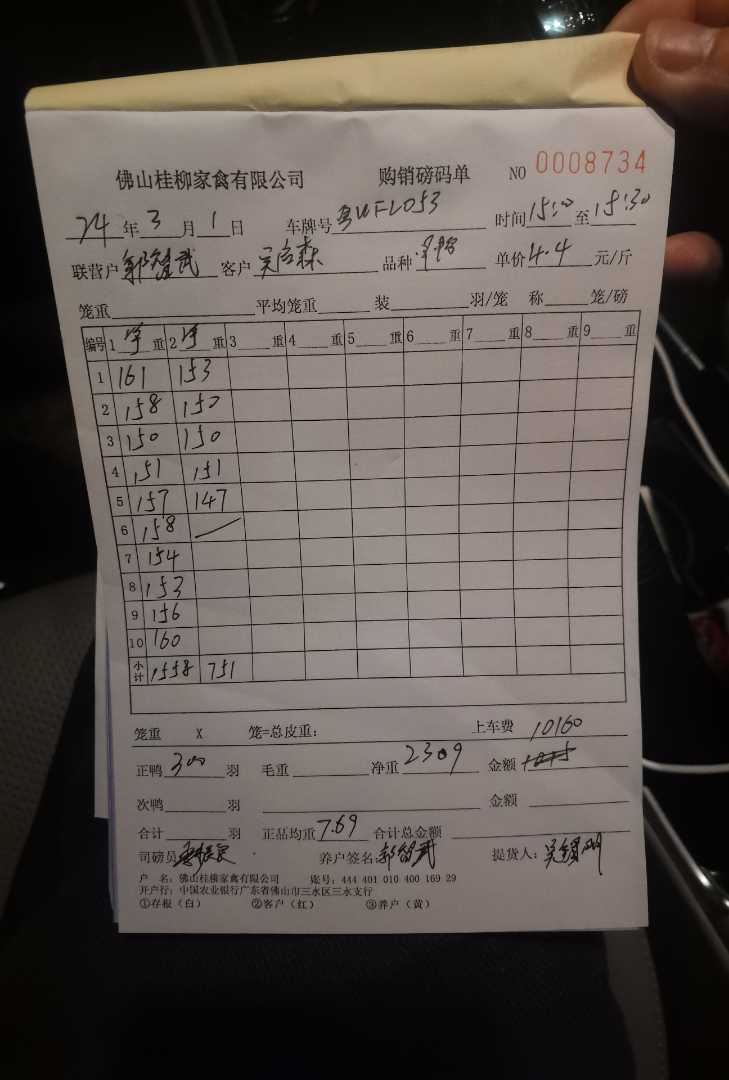 佛山桂柳家禽有限公司 购销磅码单 NO 0008734
24年3月1日 车牌号 粤UFL053 时间15:00至15:30
联营户 郭智武 客户 吴 森 品种 单价4.4元/斤
笼重 平均笼重 装 羽/笼 称 笼/磅
编号 1 净 重 2 净 重 3 重 4 重 5 重 6 重 7 重 8 重 9 重
1 161 153
2 158 150
3 150 150
4 151 151
5 157 147
6 158 /
7 154
8 153
9 156
10 160
小计 1558 751
笼重 X 笼=总皮重: 上车费 10160
正鸭 300 羽 毛重 净重 2309 金额
次鸭 羽 金额
合计 羽 正品均重 7.69 合计总金额
司磅员 养户签名 郭智武 提货人: 吴 明
户 名: 佛山桂柳家禽有限公司 账号: 444 401 010 400 169 29
开户行: 中国农业银行广东省佛山市三水区三水支行
①存根(白) ②客户(红) ③养户(黄)